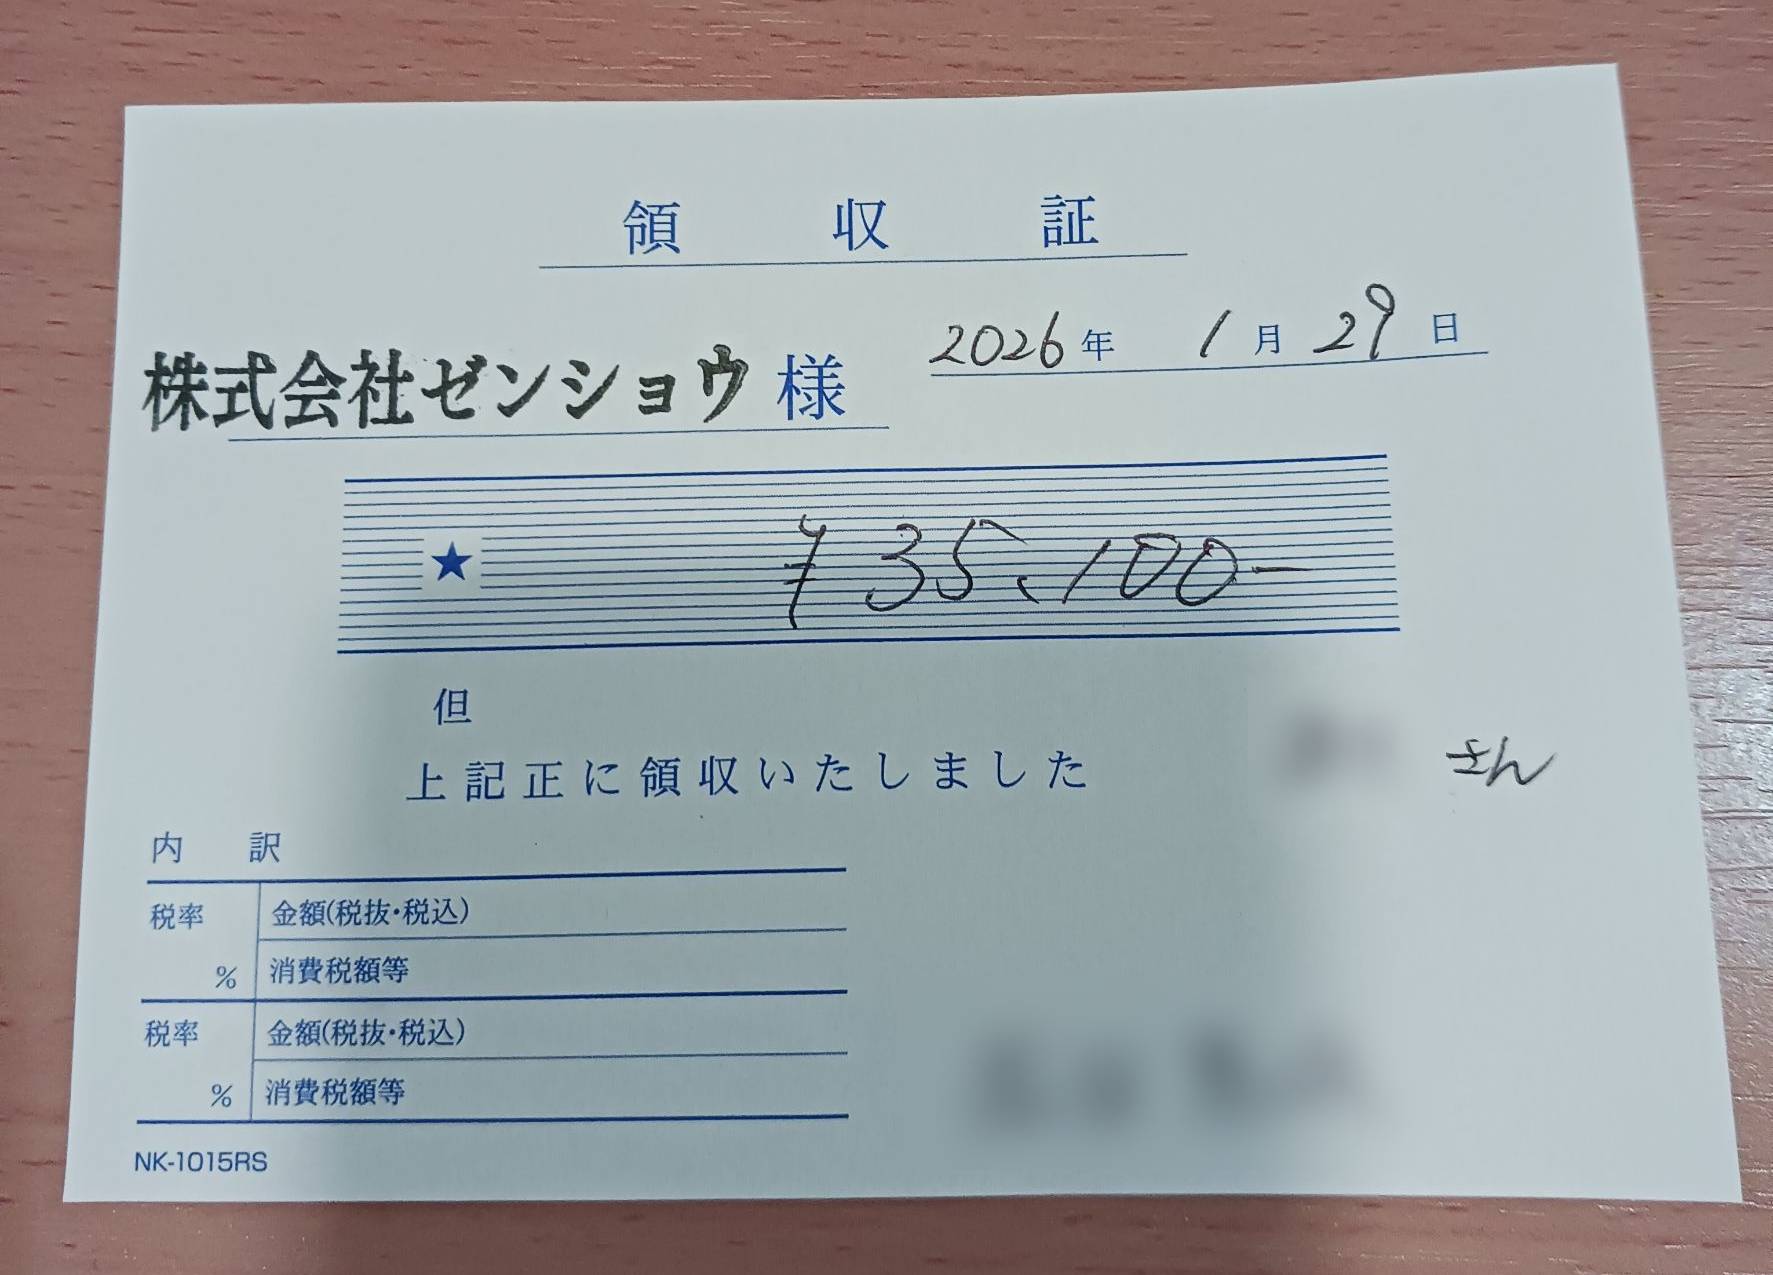 領収証
2026年 1月29日
株式会社ゼンショウ 様
★ ¥35,100-
但
上記正に領収いたしました
さん
内訳
税率 % 金額(税抜・税込)
消費税額等
税率 % 金額(税抜・税込)
消費税額等
NK-1015RS